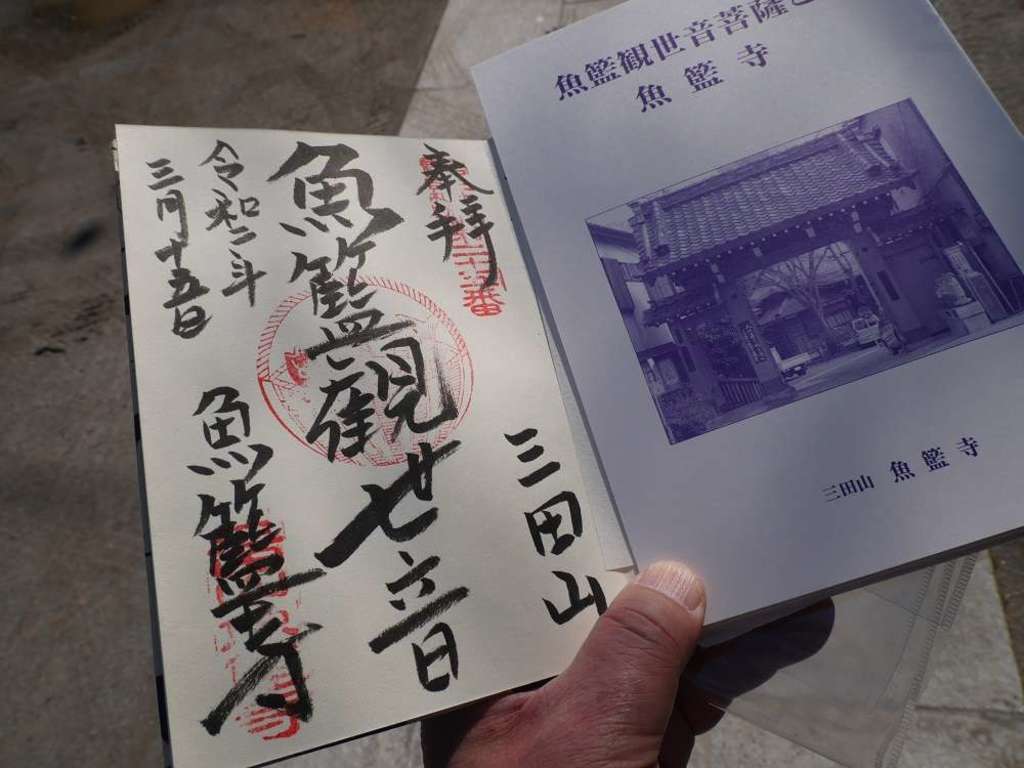 奉拝
三田山
魚籃観世音
令和二年
三月十五日
魚籃寺
魚籃観世音菩薩
魚籃寺
三田山 魚籃寺